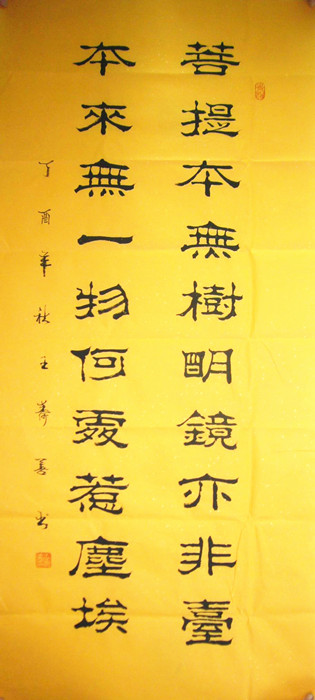 菩提本無樹明鏡亦非臺
本來無一物何處惹塵埃
丁酉年秋王善書